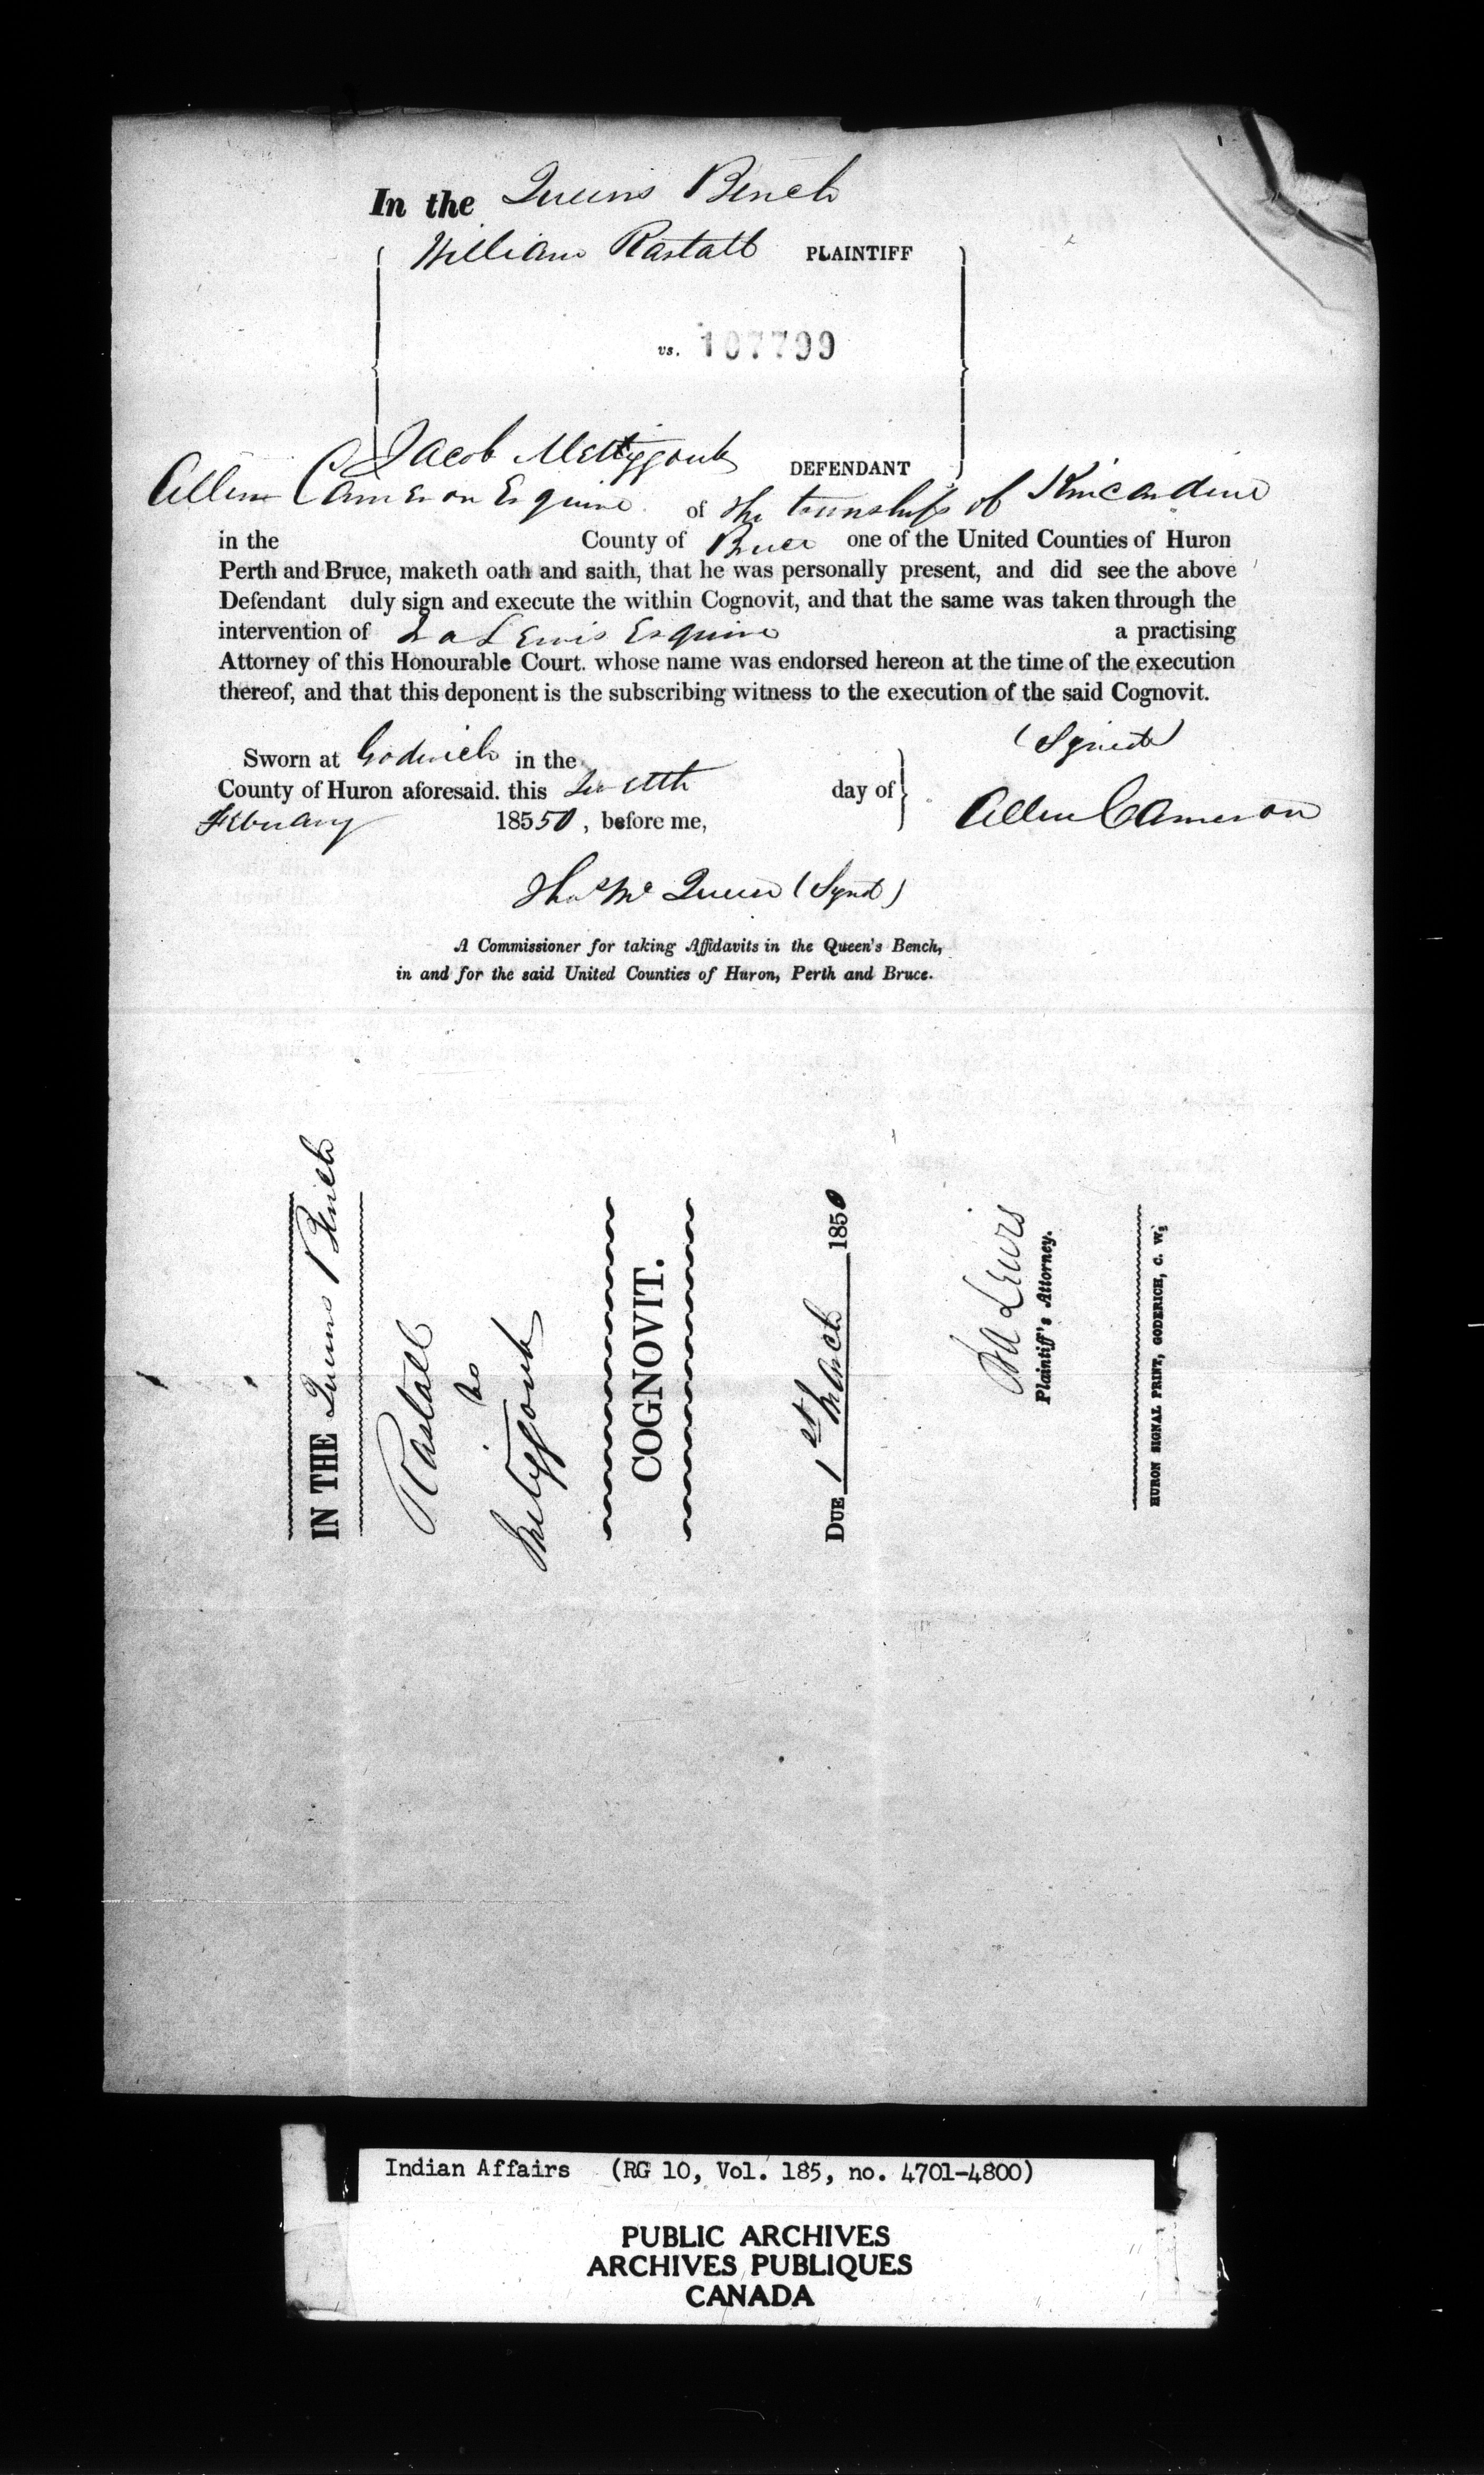 In the Queens Bench
William Rastall PLAINTIFF
vs. 107799
Jacob Mettiggoub DEFENDANT
Allen Cameron Esquire of the township of Kincardine
in the County of Bruce one of the United Counties of Huron
Perth and Bruce, maketh oath and saith, that he was personally present, and did see the above
Defendant duly sign and execute the within Cognovit, and that the same was taken through the
intervention of Lewis Esquire a practising
Attorney of this Honourable Court. whose name was endorsed hereon at the time of the execution
thereof, and that this deponent is the subscribing witness to the execution of the said Cognovit.
(Signed)
Sworn at Goderich in the
County of Huron aforesaid. this day of
February 18550, before me,
Allen Cameron
Thos Mc Queen (Synd)
A Commissioner for taking Affidavits in the Queen's Bench,
in and for the said United Counties of Huron, Perth and Bruce.
IN THE Queens Bench
Rastall
vs
Metiggoub
COGNOVIT.
DUE 1st March 1850
Lewis
Plaintiff's Attorney.
HURON SIGNAL PRINT, GODERICH, C. W.
Indian Affairs (RG 10, Vol. 185, no. 4701-4800)
PUBLIC ARCHIVES
ARCHIVES PUBLIQUES
CANADA